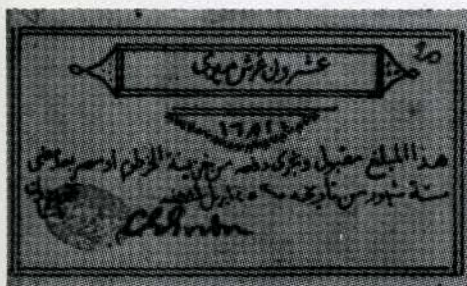 20
عشرون غرش
هذا المبلغ مقبول ويجرى دفعه من خزينة الخرطوم او مصر بعد مضى
ستة شهور من تاريخه ٢٥ ابريل